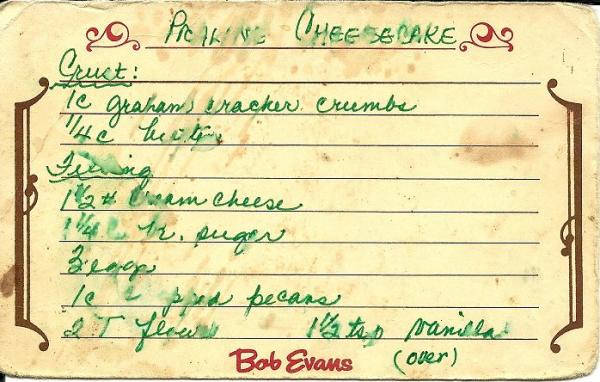 PRALINE CHEESECAKE
Crust:
1c graham cracker crumbs
1/4 c butter
Filling
1 1/2 # cream cheese
1 1/4 c br. sugar
3 eggs
1c pecans
2 T flour 1 1/2 tsp vanilla
Bob Evans (over)